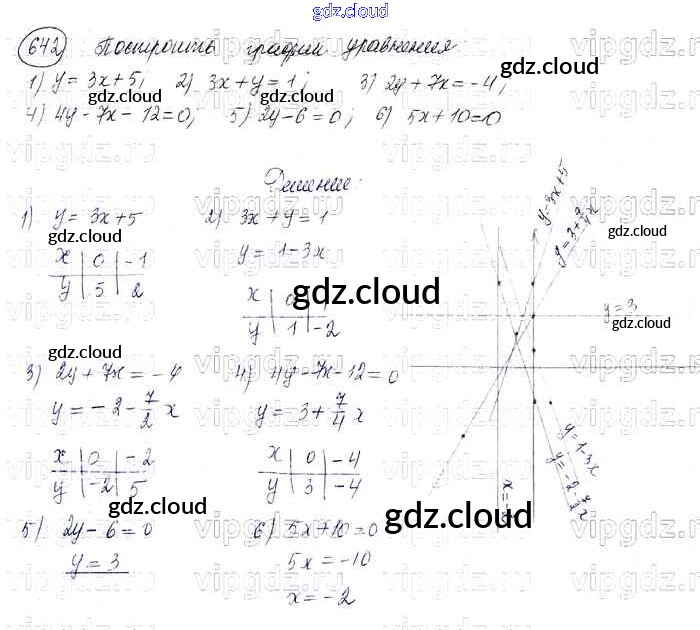 gdz.cloud
642 Построить график уравнения
1) y = 3x+5; 2) 3x+y=1; 3) 2y+7x=-4;
4) 4y-7x-12=0; 5) 2y-6=0; 6) 5x+10=0
Решение:
1) y = 3x+5
x | 0 | -1
y | 5 | 2
2) 3x+y=1
y = 1-3x
x | 0
y | 1 | -2
3) 2y+7x=-4
y = -2-7/2x
x | 0 | -2
y | -2 | 5
4) 4y-7x-12=0
y = 3+7/4x
x | 0 | -4
y | 3 | -4
5) 2y-6=0
y = 3
6) 5x+10=0
5x = -10
x = -2
y=3x+5
y=3+7/4x
y=3
y=1-3x
y=-2-7/2x
gdz.cloud
gdz.cloud
gdz.cloud
gdz.cloud
gdz.cloud
gdz.cloud
gdz.cloud
gdz.cloud
gdz.cloud
gdz.cloud
gdz.cloud
vipgdz.ru